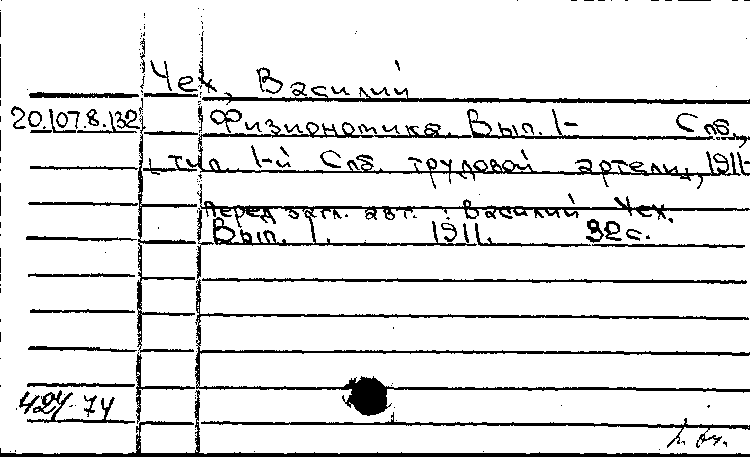 Чех, Василий
20.107.8.132 Физиономика. Вып. 1- Спб.,
тип. 1-й Спб. трудовой артели, 1911-
Перед загл. авт.: Василий Чех.
Вып. 1. 1911. 32 с.
424-74